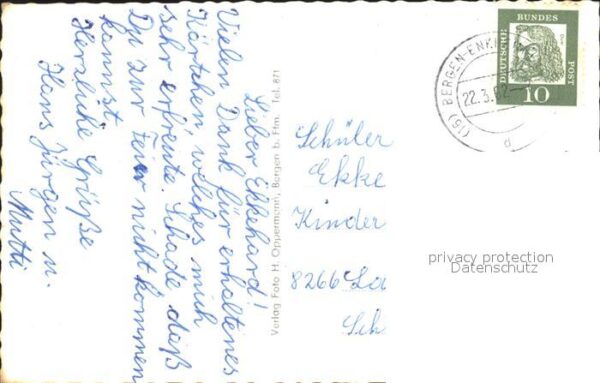 Lieber Ekkehard!
Vielen Dank für erhaltenes
Kärtchen welches mich
sehr erfreute. Schade daß
Du zur Feier nicht kommen
kannst
Herzliche Grüße
Hans Jürgen u.
Mutti
Verlag Foto H. Oppermann, Bergen b. Ffm. Tel. 871
Schüler
Ekke
Kinder
8266 La
Sch
DEUTSCHE BUNDES POST
10
(16) BERGEN-ENK
22.3.62
privacy protection
Datenschutz